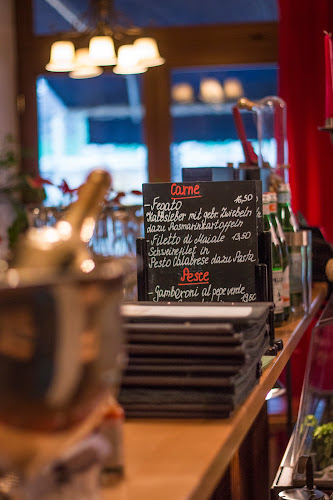 Carne
Fegato 16,50
Kalbsleber mit gebr. Zwiebeln
dazu Rosmarinkartoffeln
Filetto di Maiale 19,50
Schweinefilet in
Pesto Calabrese dazu Pasta
Pesce
Gamberoni al pepe verde
19,50